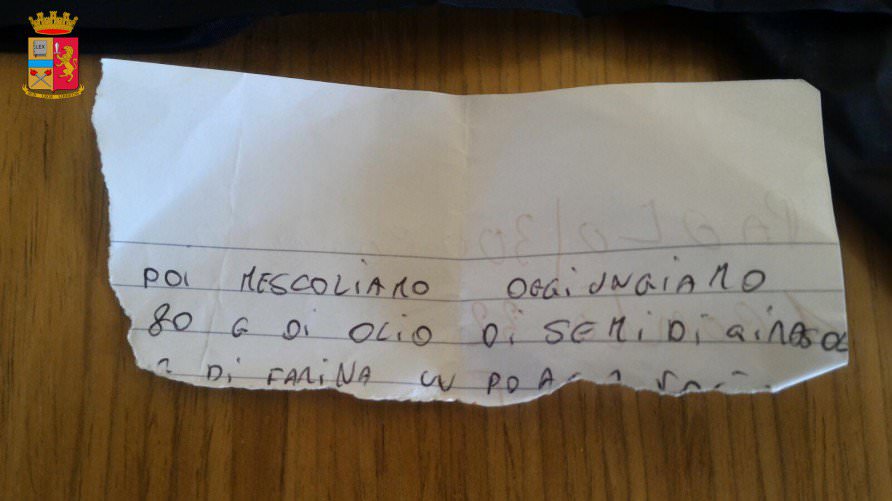 LEX
POI MESCOLIAMO OGGiUNGiAMO
80 G Di OLiO Di SEMi Di GiRASOL
Di FARiNA UN PO A